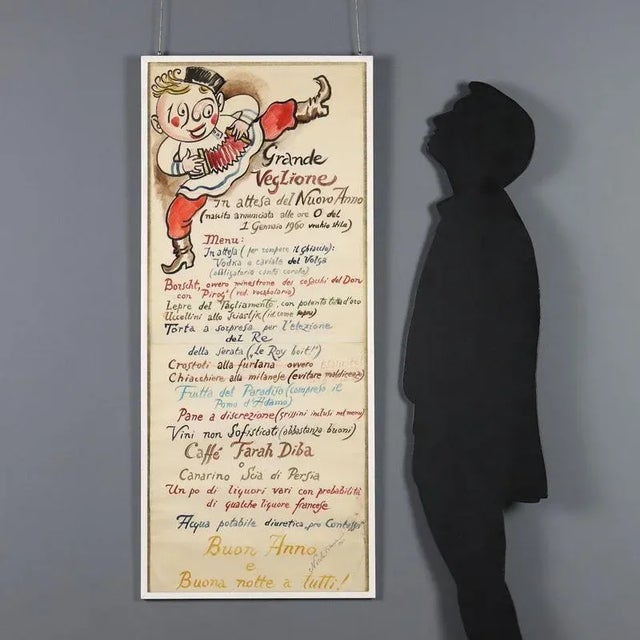 Grande
Veglione
In attesa del Nuovo Anno
(nascita annunciata alle ore 0 del
1 Gennaio 1960 vecchio stile)
Menu:
In attesa (per rompere il ghiaccio):
Vodka e caviale del Volga
(obbligatorio canto corale)
Borscht, ovvero minestrone dei cosacchi del Don
con Pirog' (ved. vocabolario)
Lepre del Tagliamento, con polenta d'oro
Uccellini allo (idem come sopra)
Torta a sorpresa per l'elezione
del Re
della serata ("Le Roy boit!")
Crostoli alla furlana ovvero
Chiacchiere alla milanese (evitare maldicenze)
Frutta del Paradiso (compreso il
Pomo d'Adamo)
Pane a discrezione (grissini inclusi nel menu)
Vini non Sofisticati (abbastanza buoni)
Caffé Farah Diba
o
Canarino Scià di Persia
Un po di liquori vari con probabilità
di qualche liquore francese
Acqua potabile diuretica, pro
Buon Anno
e
Buona notte a tutti!